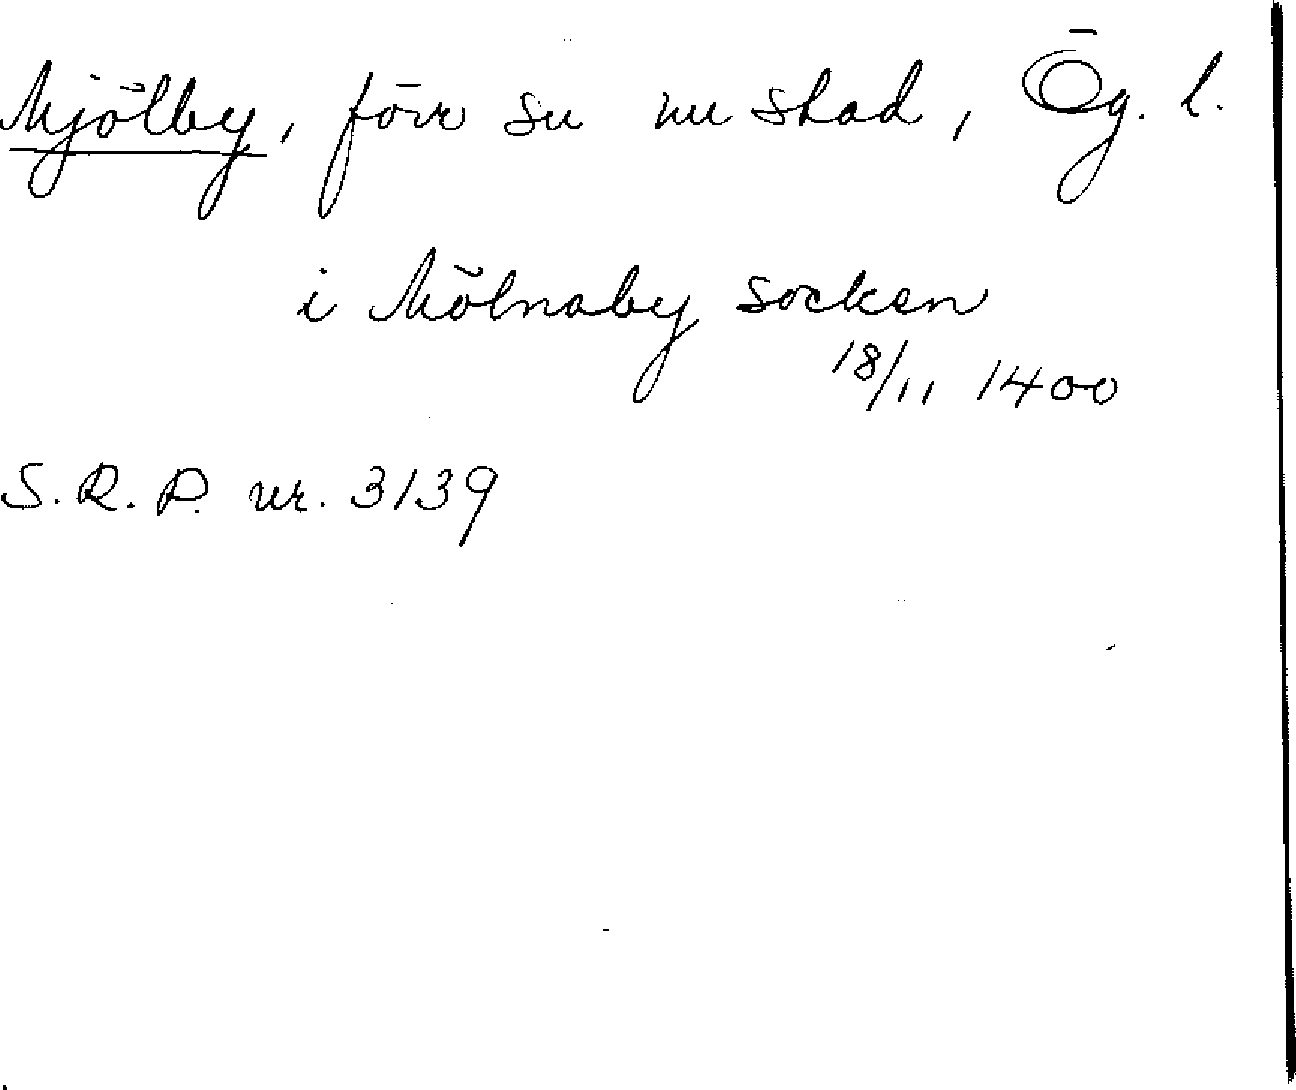 Mjölby, förr sn nu stad, Ög. l.
i Mölnaby socken
18/11 1400
S.R.P. nr. 3139